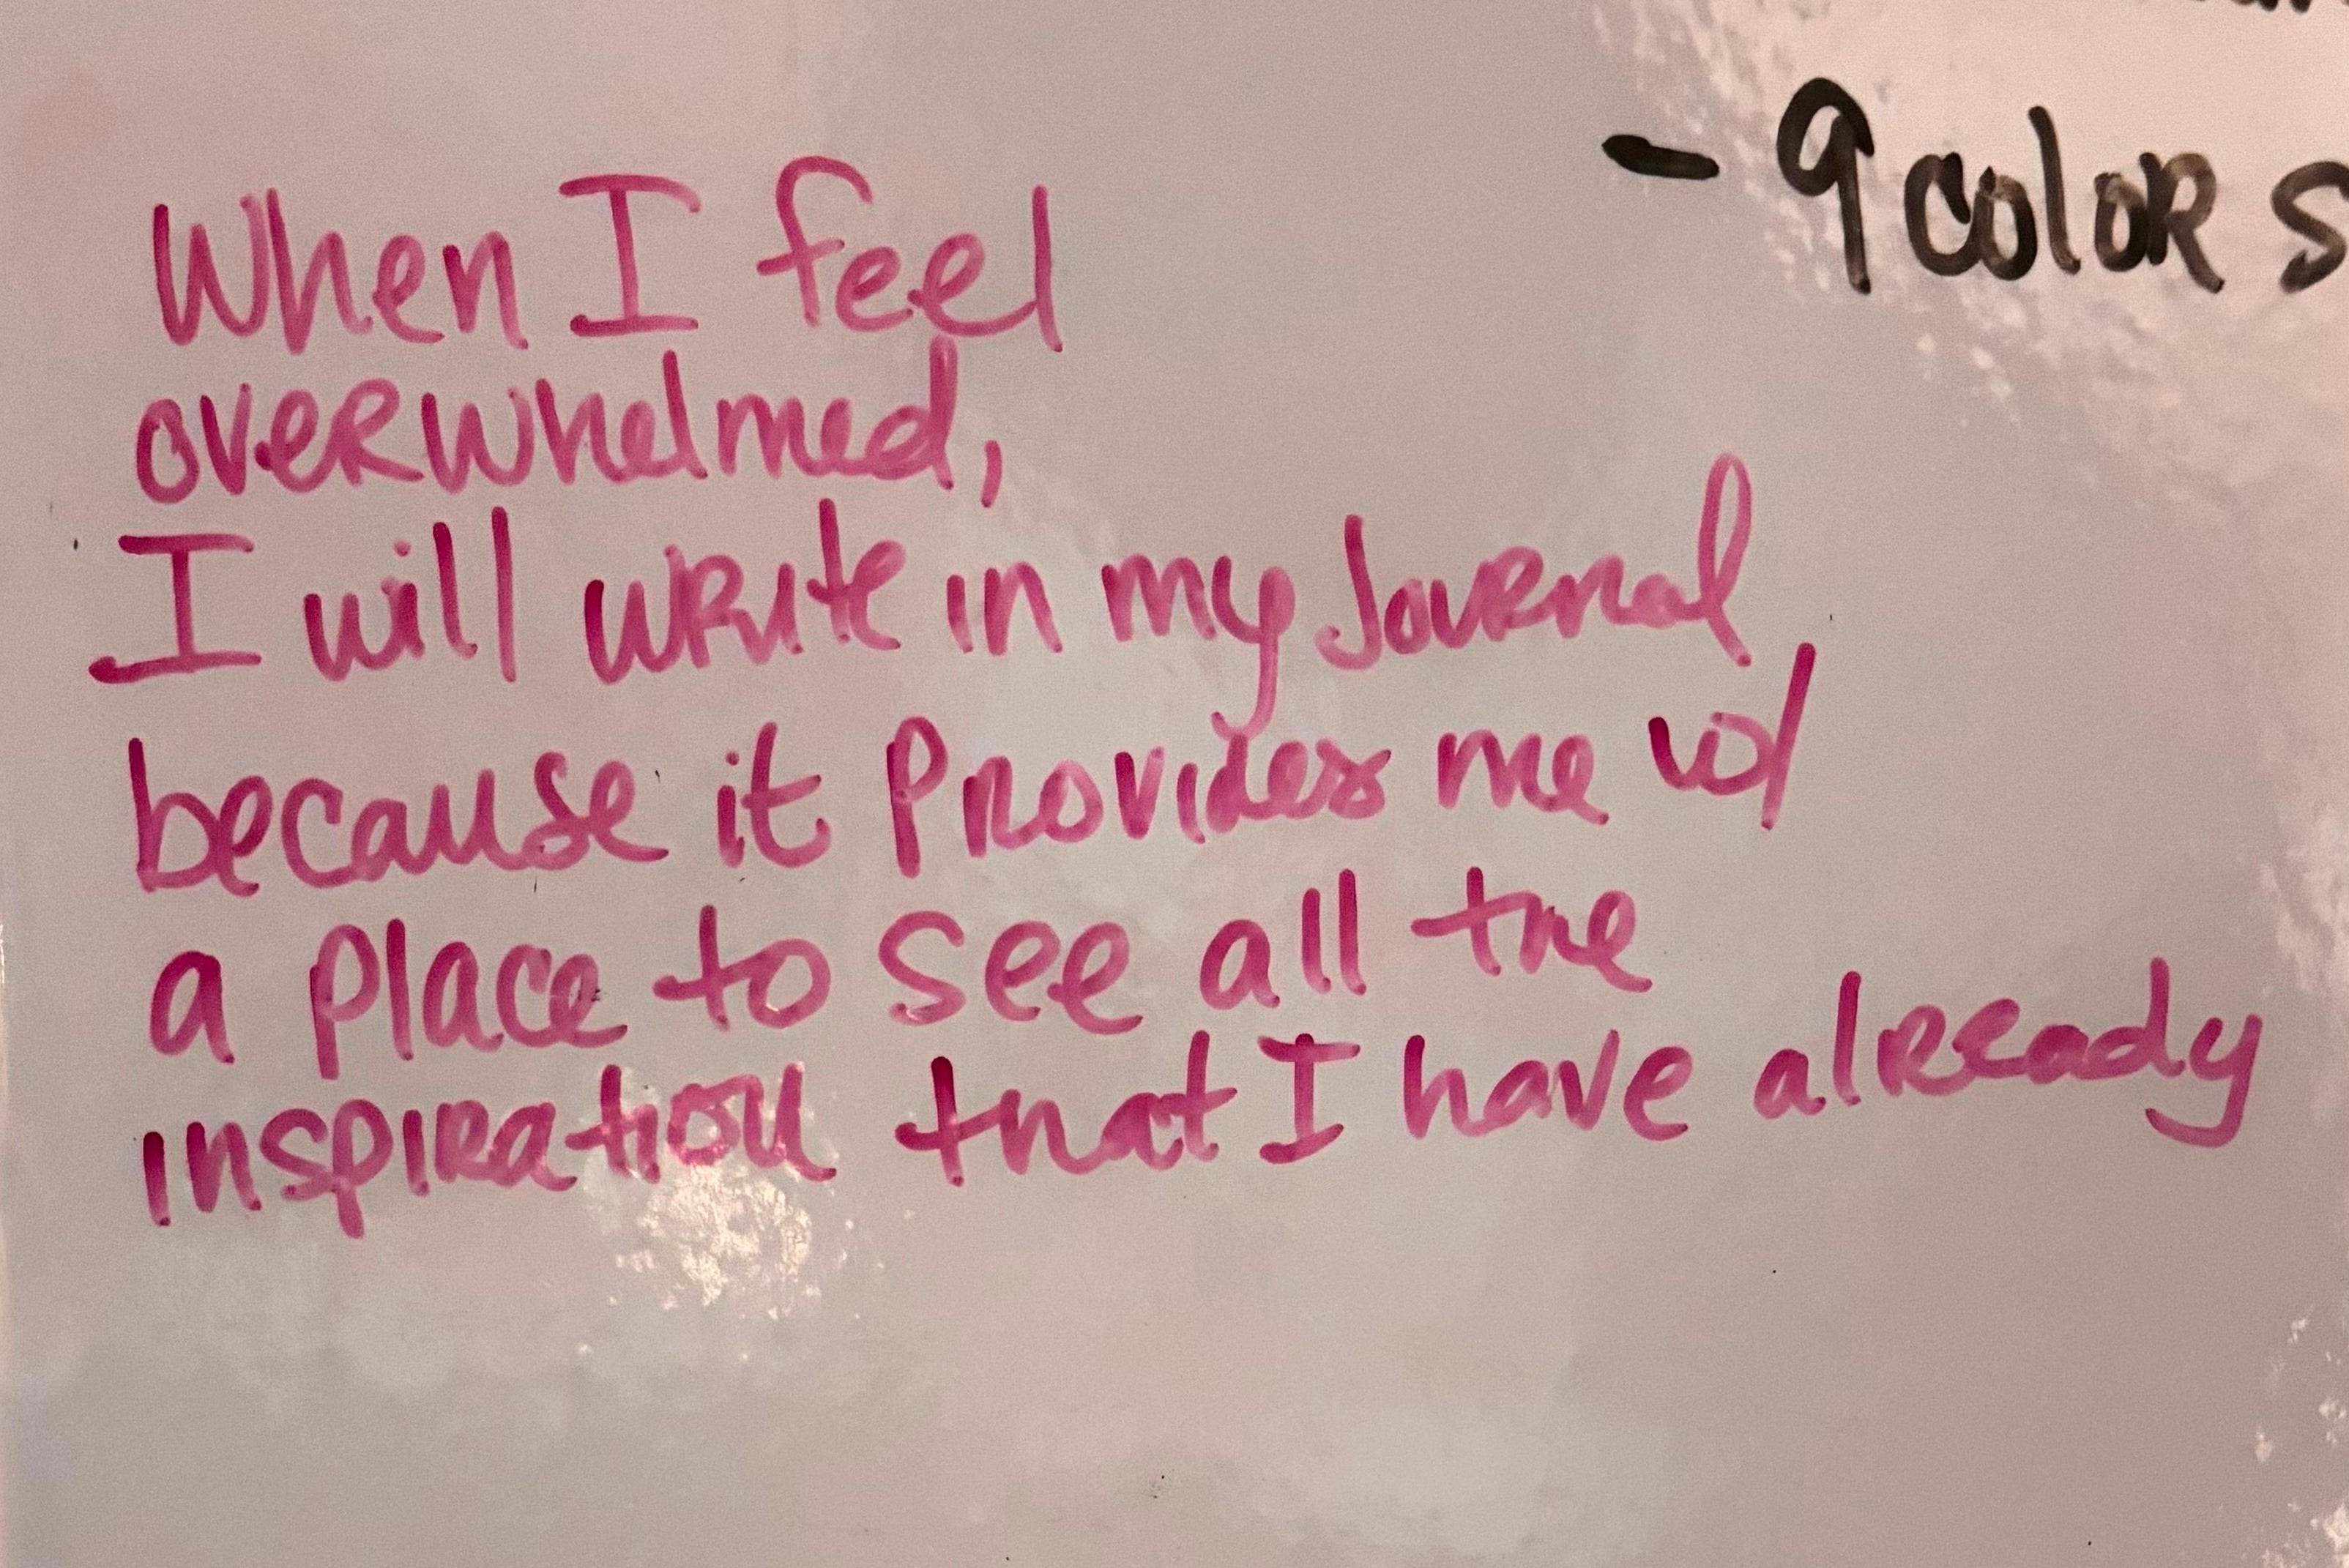 - 9 color s
When I feel
overwhelmed,
I will write in my Journal
because it Provides me w/
a place to see all the
inspiration that I have already